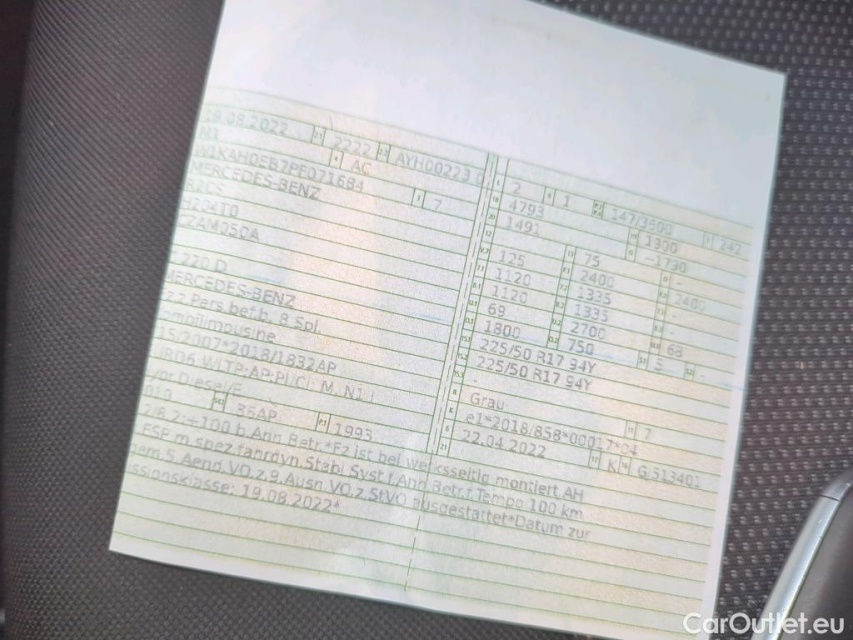 19.08.2022 2222 AYH00223
N1 AC
W1KAH0EB7PF071684
MERCEDES-BENZ 7
R2CS
H204T0
CZAM05DA
220 D
MERCEDES-BENZ
z.z.Pers.bef.b. 8 Spl.
ompilimousine
15/2007*2018/1832AP
WLTP;AP;PI/CI; M, N1 I
Diesel/E
010 36AP 1993
2/8.2:+100 b.Ann.Betr.*Fz ist bei werksseitig montiert AH
ESP m.spez.fahrdyn.Stabi.Syst.f.Anh.Betr.f.Tempo 100 km
em.5.Aend.VO.z.9.Ausn.VO.z.StVO ausgestattet*Datum zur
ssionsklasse: 19.08.2022*
2 1 147/3500 242
4793 1900 -1790
1491
125 75 -
1120 2400 2400
1120 1335 -
69 1335 -
1800 2700 68
225/50 R17 94Y 750 5 -
225/50 R17 94Y
-
Grau 7
e1*2018/858*00017*04
22.04.2022 K G.513401
CarOutlet.eu